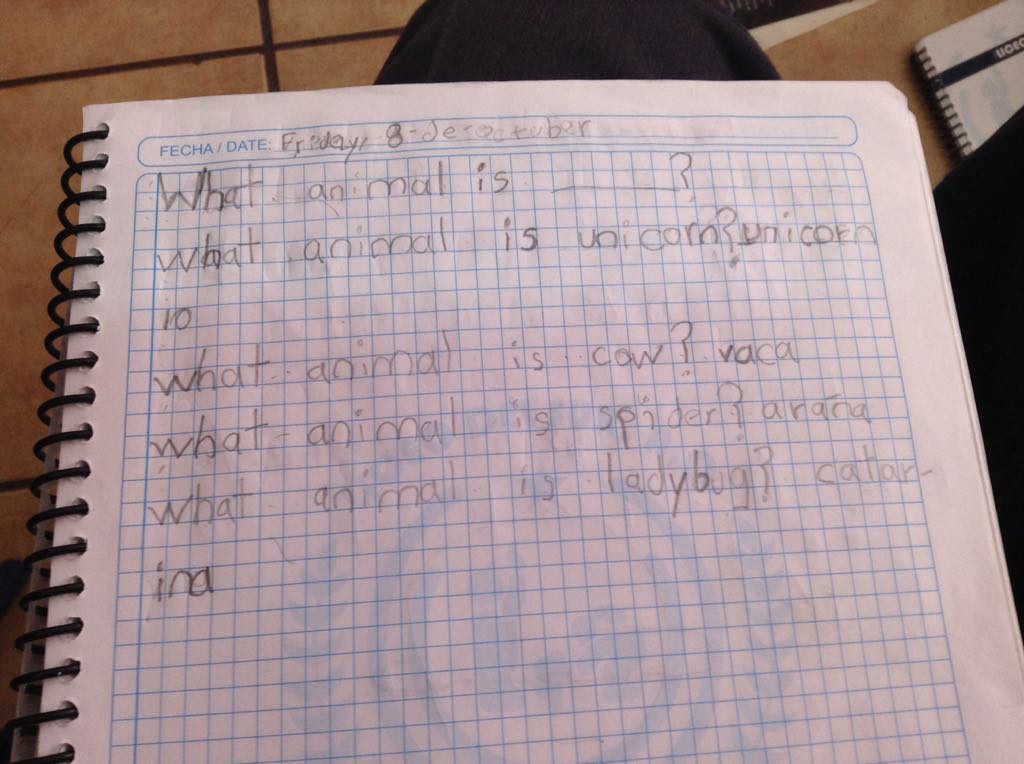 FECHA / DATE: Friday, 8-de-octuber
What animal is ______?
what animal is unicorn? unicorn
io
what animal is cow? vaca
what animal is spider? araña
what animal is ladybug? catar-
ina
LICEO